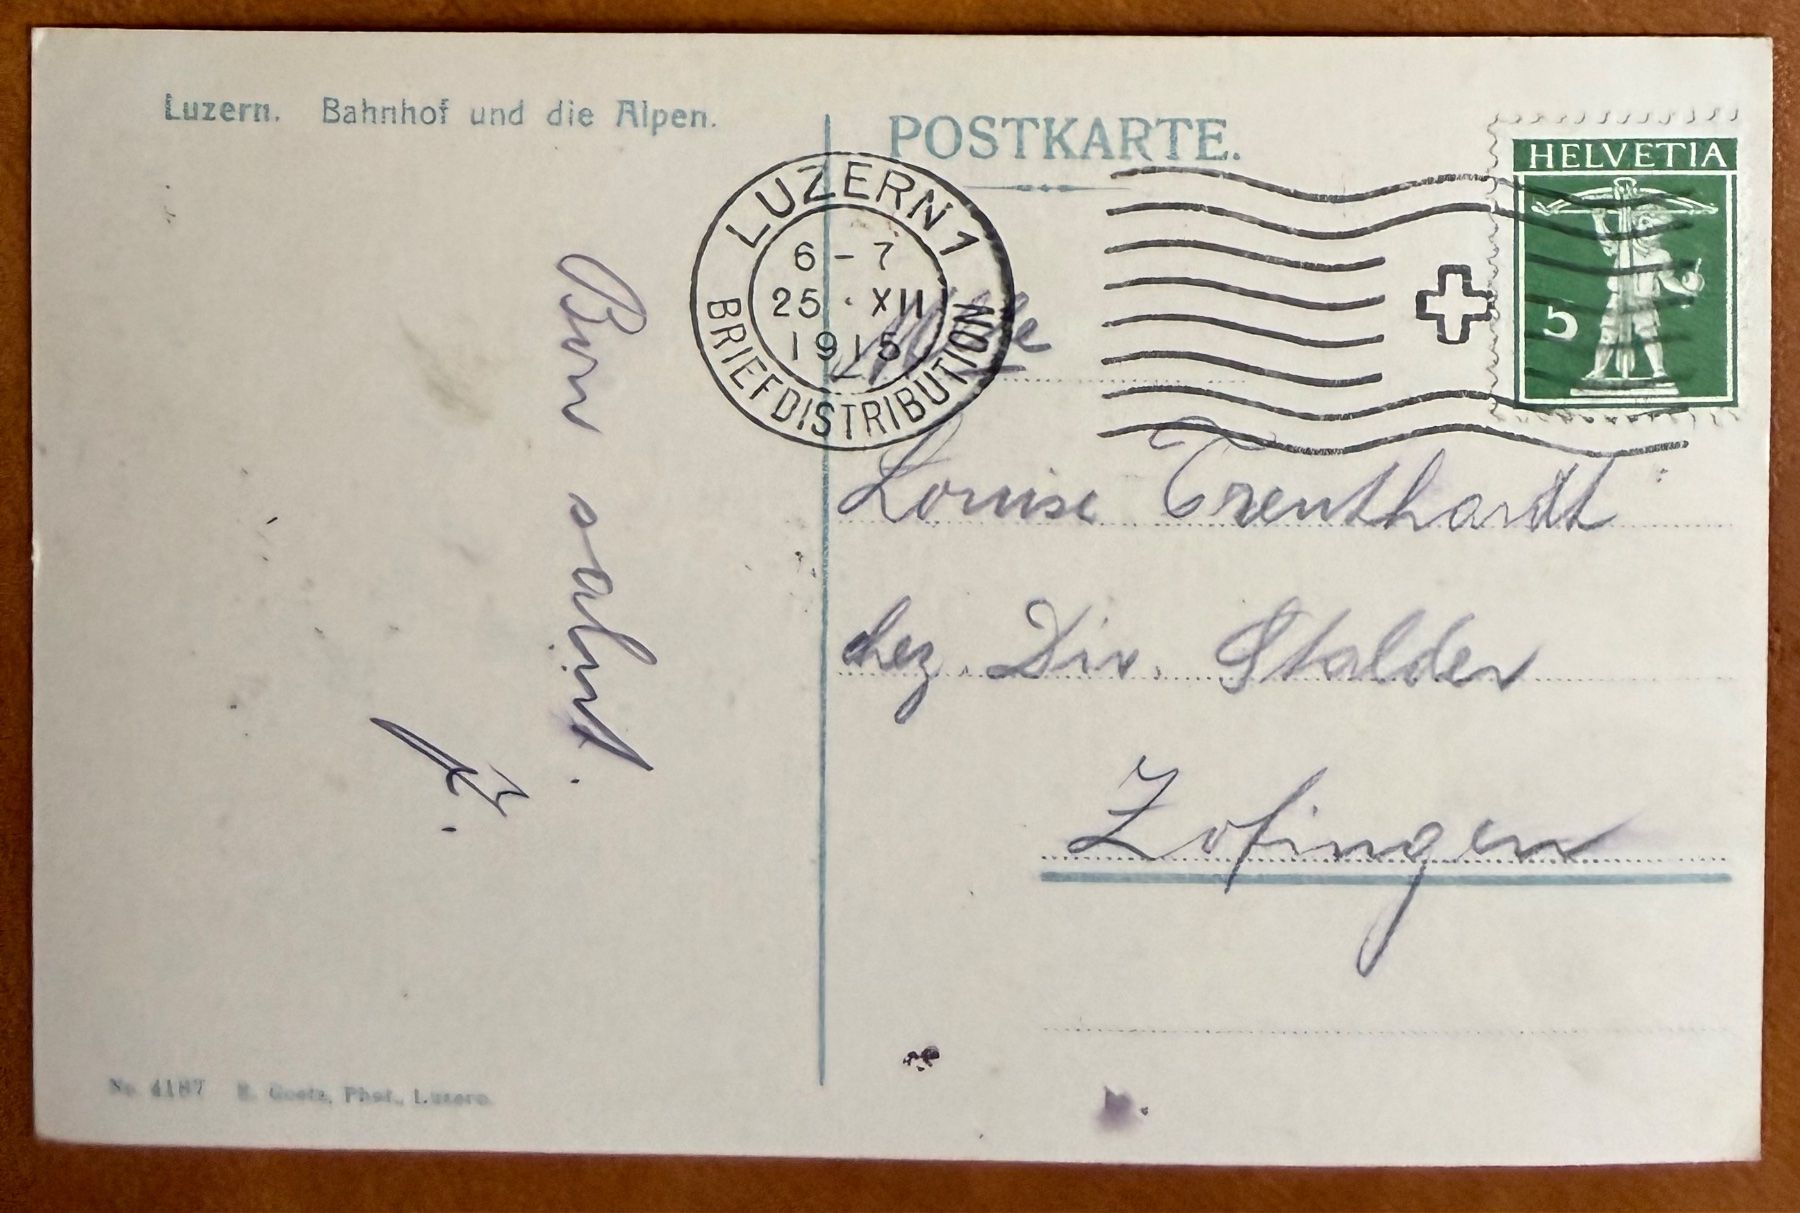 Luzern. Bahnhof und die Alpen.
POSTKARTE.
HELVETIA
5
LUZERN 1
6-7
25·XII
1915
BRIEFDISTRIBUTION
Mlle
Louise Trenthardt
chez. Div. Stalder
Zofingen
Bon salut.
No. 4187 E. Goetz, Phot., Luzern.